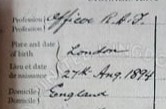 Profession } Officer R.A.F.
Profession
Place and date
of birth } London
Lieu et date
de naissance } 27th Aug. 1894
Domicile } England
Domicile